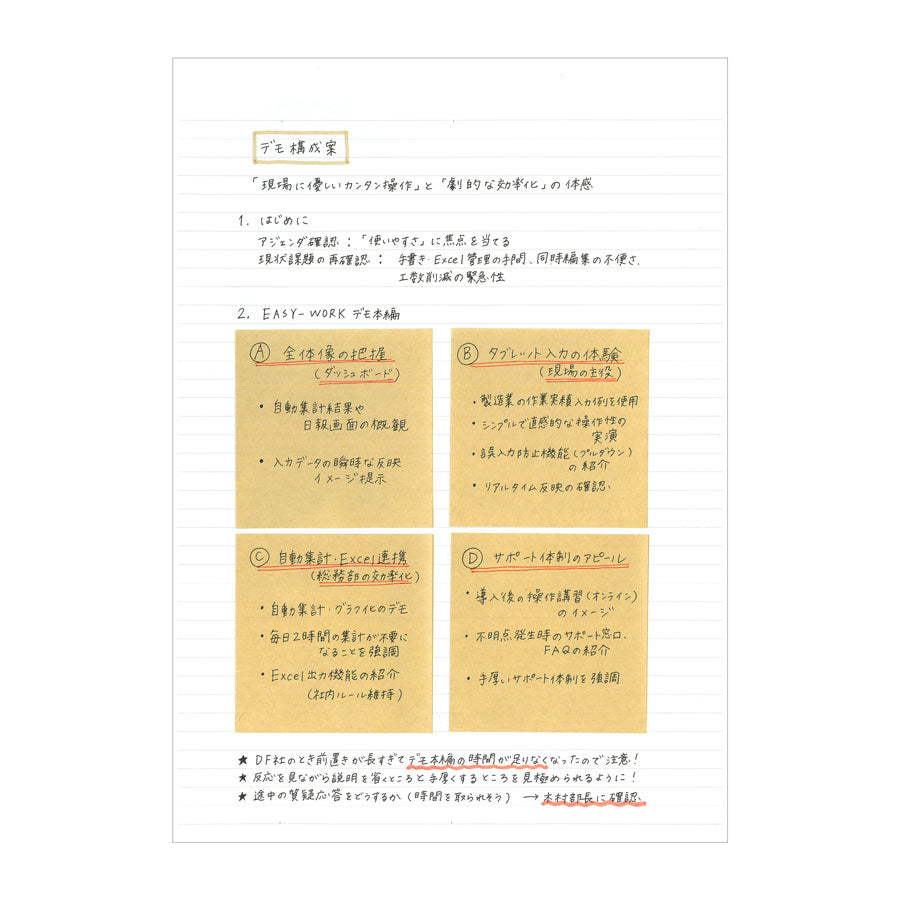 デモ構成案
「現場に優しいカンタン操作」と「劇的な効率化」の体感
1. はじめに
アジェンダ確認：「使いやすさ」に焦点を当てる
現状課題の再確認：手書き・Excel管理の手間、同時編集の不便さ、
工数削減の緊急性
2. EASY-WORK デモ本編
Ⓐ 全体像の把握
(ダッシュボード)
• 自動集計結果や
日報画面の概観
• 入力データの瞬時な反映
イメージ提示
Ⓑ タブレット入力の体験
(現場の主役)
• 製造業の作業実績入力例を使用
• シンプルで直感的な操作性の
実演
• 誤入力防止機能(プルダウン)
の紹介
• リアルタイム反映の確認
Ⓒ 自動集計・Excel連携
(総務部の効率化)
• 自動集計・グラフ化のデモ
• 毎日2時間の集計が不要に
なることを強調
• Excel出力機能の紹介
(社内ルール維持)
Ⓓ サポート体制のアピール
• 導入後の操作講習(オンライン)
のイメージ
• 不明点発生時のサポート窓口、
FAQの紹介
• 手厚いサポート体制を強調
★ DF社のとき前置きが長すぎてデモ本編の時間が足りなくなったので注意！
★ 反応を見ながら説明を省くところと手厚くするところを見極められるように！
★ 途中の質疑応答をどうするか(時間を取られそう) → 本村部長に確認